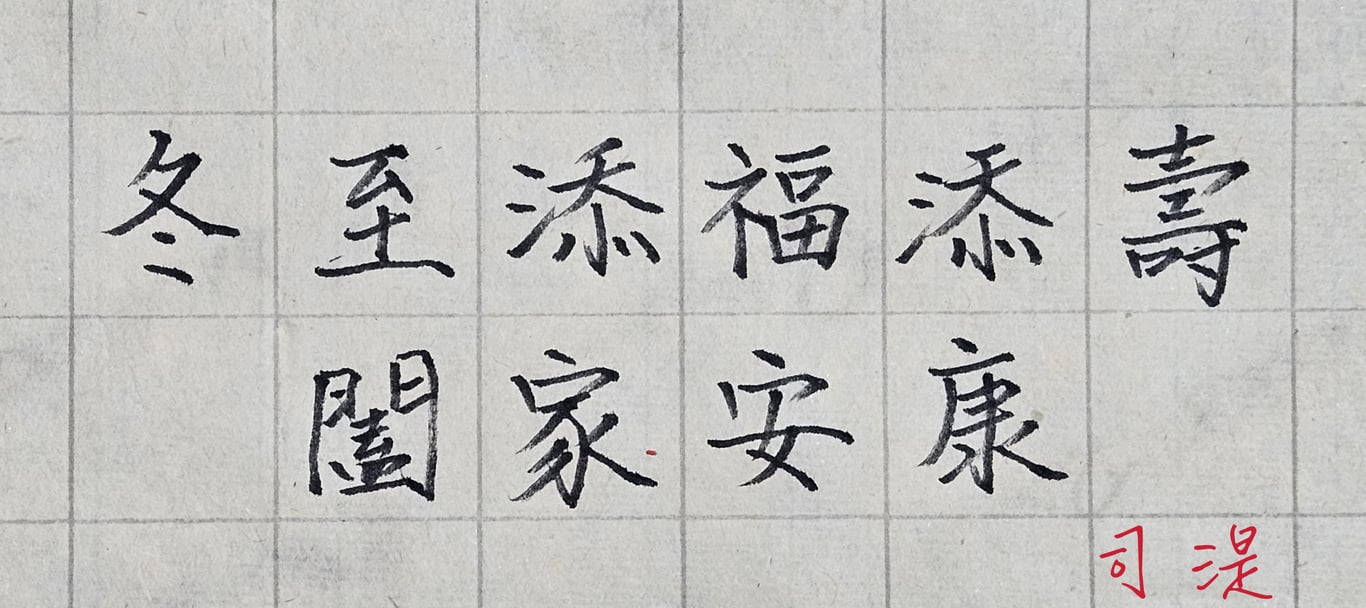 冬至添福添壽
闔家安康
司湜